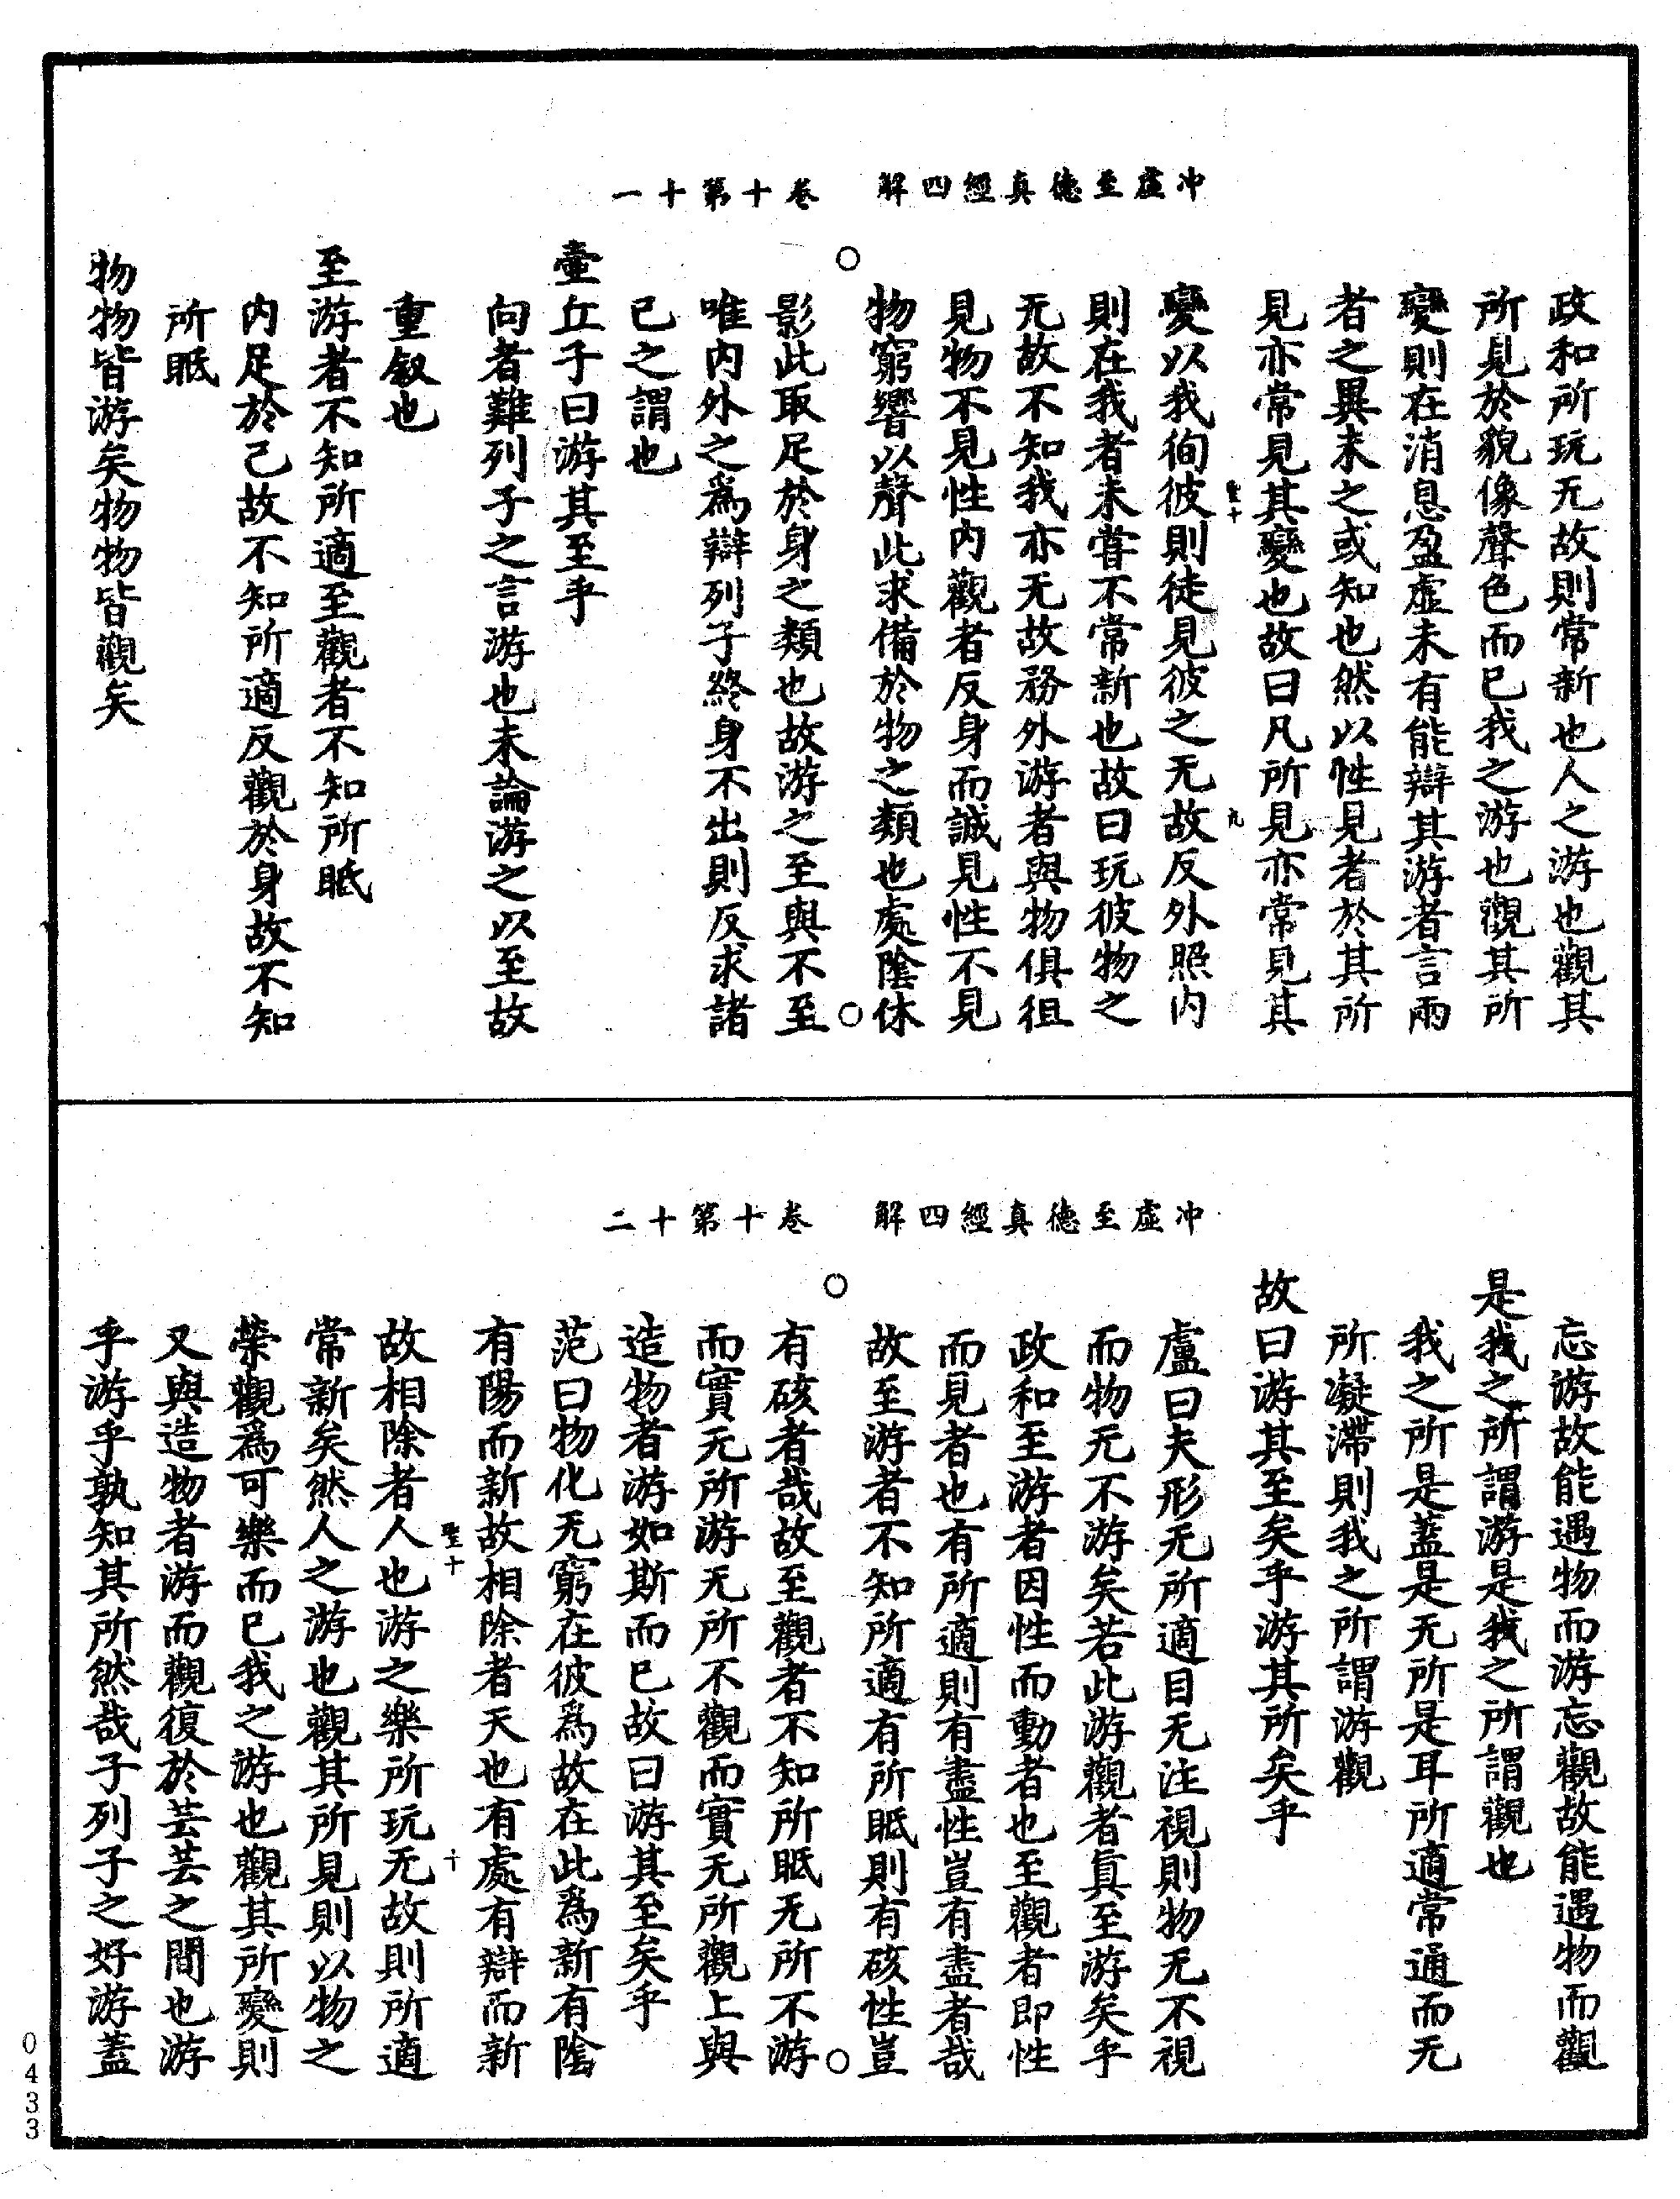 冲虛至德真經四解　卷十第十一
政和所玩无故則常新也人之游也觀其
所見於貌像聲色而已我之游也觀其所
變則在消息盈虛未有能辯其游者言兩
者之異未之或知也然以性見者於其所
見亦常見其變也故曰凡所見亦常見其
聖十　九
變以我徇彼則徒見彼之无故反外照内
則在我者未甞不常新也故曰玩彼物之
无故不知我亦无故務外游者與物俱徂
見物不見性内觀者反身而誠見性不見
物窮響以聲此求備於物之類也處陰休
影此取足於身之類也故游之至與不至
唯内外之爲辯列子終身不出則反求諸
已之謂也
壷丘子曰游其至乎
向者難列子之言游也未論游之以至故
重叙也
至游者不知所適至觀者不知所眂
内足於己故不知所適反觀於身故不知
所眂
物物皆游矣物物皆觀矣
冲虛至德真經四解　卷十第十二
忘游故能遇物而游忘觀故能遇物而觀
是我之所謂游是我之所謂觀也
我之所是蓋是无所是耳所適常通而无
所凝滯則我之所謂游觀
故曰游其至矣乎游其所矣乎
盧曰夫形无所適目无注視則物无不視
而物无不游矣若此游觀者真至游矣乎
政和至游者因性而動者也至觀者即性
而見者也有所適則有盡性豈有盡者哉
故至游者不知所適有所眂則有礙性豈
有礙者哉故至觀者不知所眂无所不游
而實无所游无所不觀而實无所觀上與
造物者游如斯而已故曰游其至矣乎
范曰物化无窮在彼爲故在此爲新有陰
有陽而新故相除者天也有處有辯而新
聖十　十
故相除者人也游之樂所玩无故則所適
常新矣然人之游也觀其所見則以物之
榮觀爲可樂而已我之游也觀其所變則
又與造物者游而觀復於芸芸之間也游
乎游乎孰知其所然哉子列子之好游蓋
0433